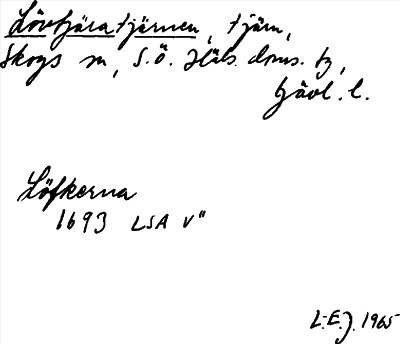 Lövtjäratjärnen, tjärn,
Skogs sn, S.Ö. Häls. doms. tg,
Gävl. l.
Löfkerna
1693 LSA V"
L.E.J. 1965